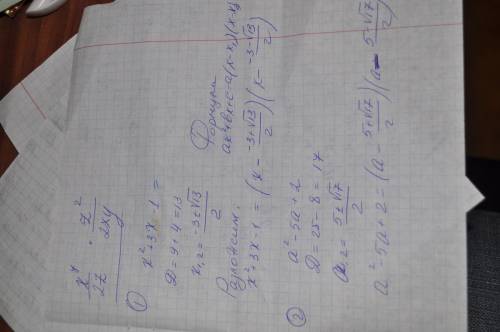 x⁷/2z · z²/2xy
① x²+3x-1=
D=9+4=13
x₁,₂= -3±√13/2
Разложим: Формула
ax²+bx+c=a(x-x₁)(x-x₂)
x²+3x-1=(x- -3+√13/2)(x- -3-√13/2)
② a²-5a+2
D=25-8=17
a₁,₂= 5±√17/2
a²-5a+2=(a- 5+√17/2)(a- 5-√17/2)